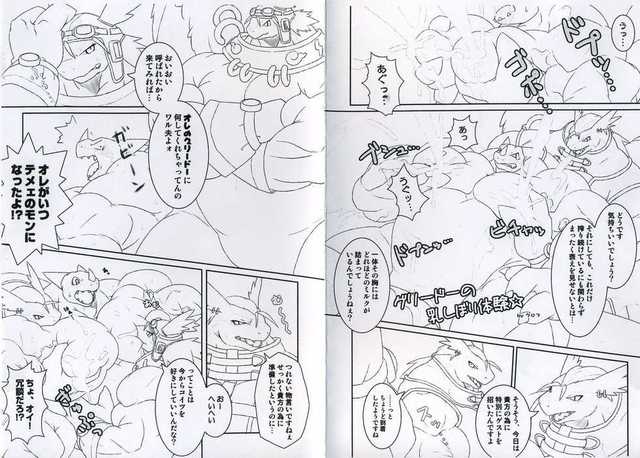 うっ…
ドプッ…
ガポ…
あぐっ…
あっ
うぐッ…
ドプンッ…
ビチャッ
どうです
気持ちいいでしょう?
それにしても、これだけ
搾り続けているにも関わらず
まったく衰えを見せないとは…
一体その胸には
どれほどのミルクが
詰まって
いるんでしょうねぇ?
グリードーの
乳しぼり体験☆
そうそう、今日は
貴方の為に
特別にゲストを
招いたんですよ
…っと
ちょうど到着
したようですね
おいおい
呼ばれたから
来てみれば…
オレのグリードーに
何してくれちゃってんの
ワル夫よォ
ガビーン
オレがいつ
テメェのモンに
なったよ!?
つれない物言いですねぇ
せっかく貴方の為に
準備したというのに…
おー
へいへい
ってことは
今からコイツを
好きにしていいんだな?
ちょ、オイ!
冗談だろ!?